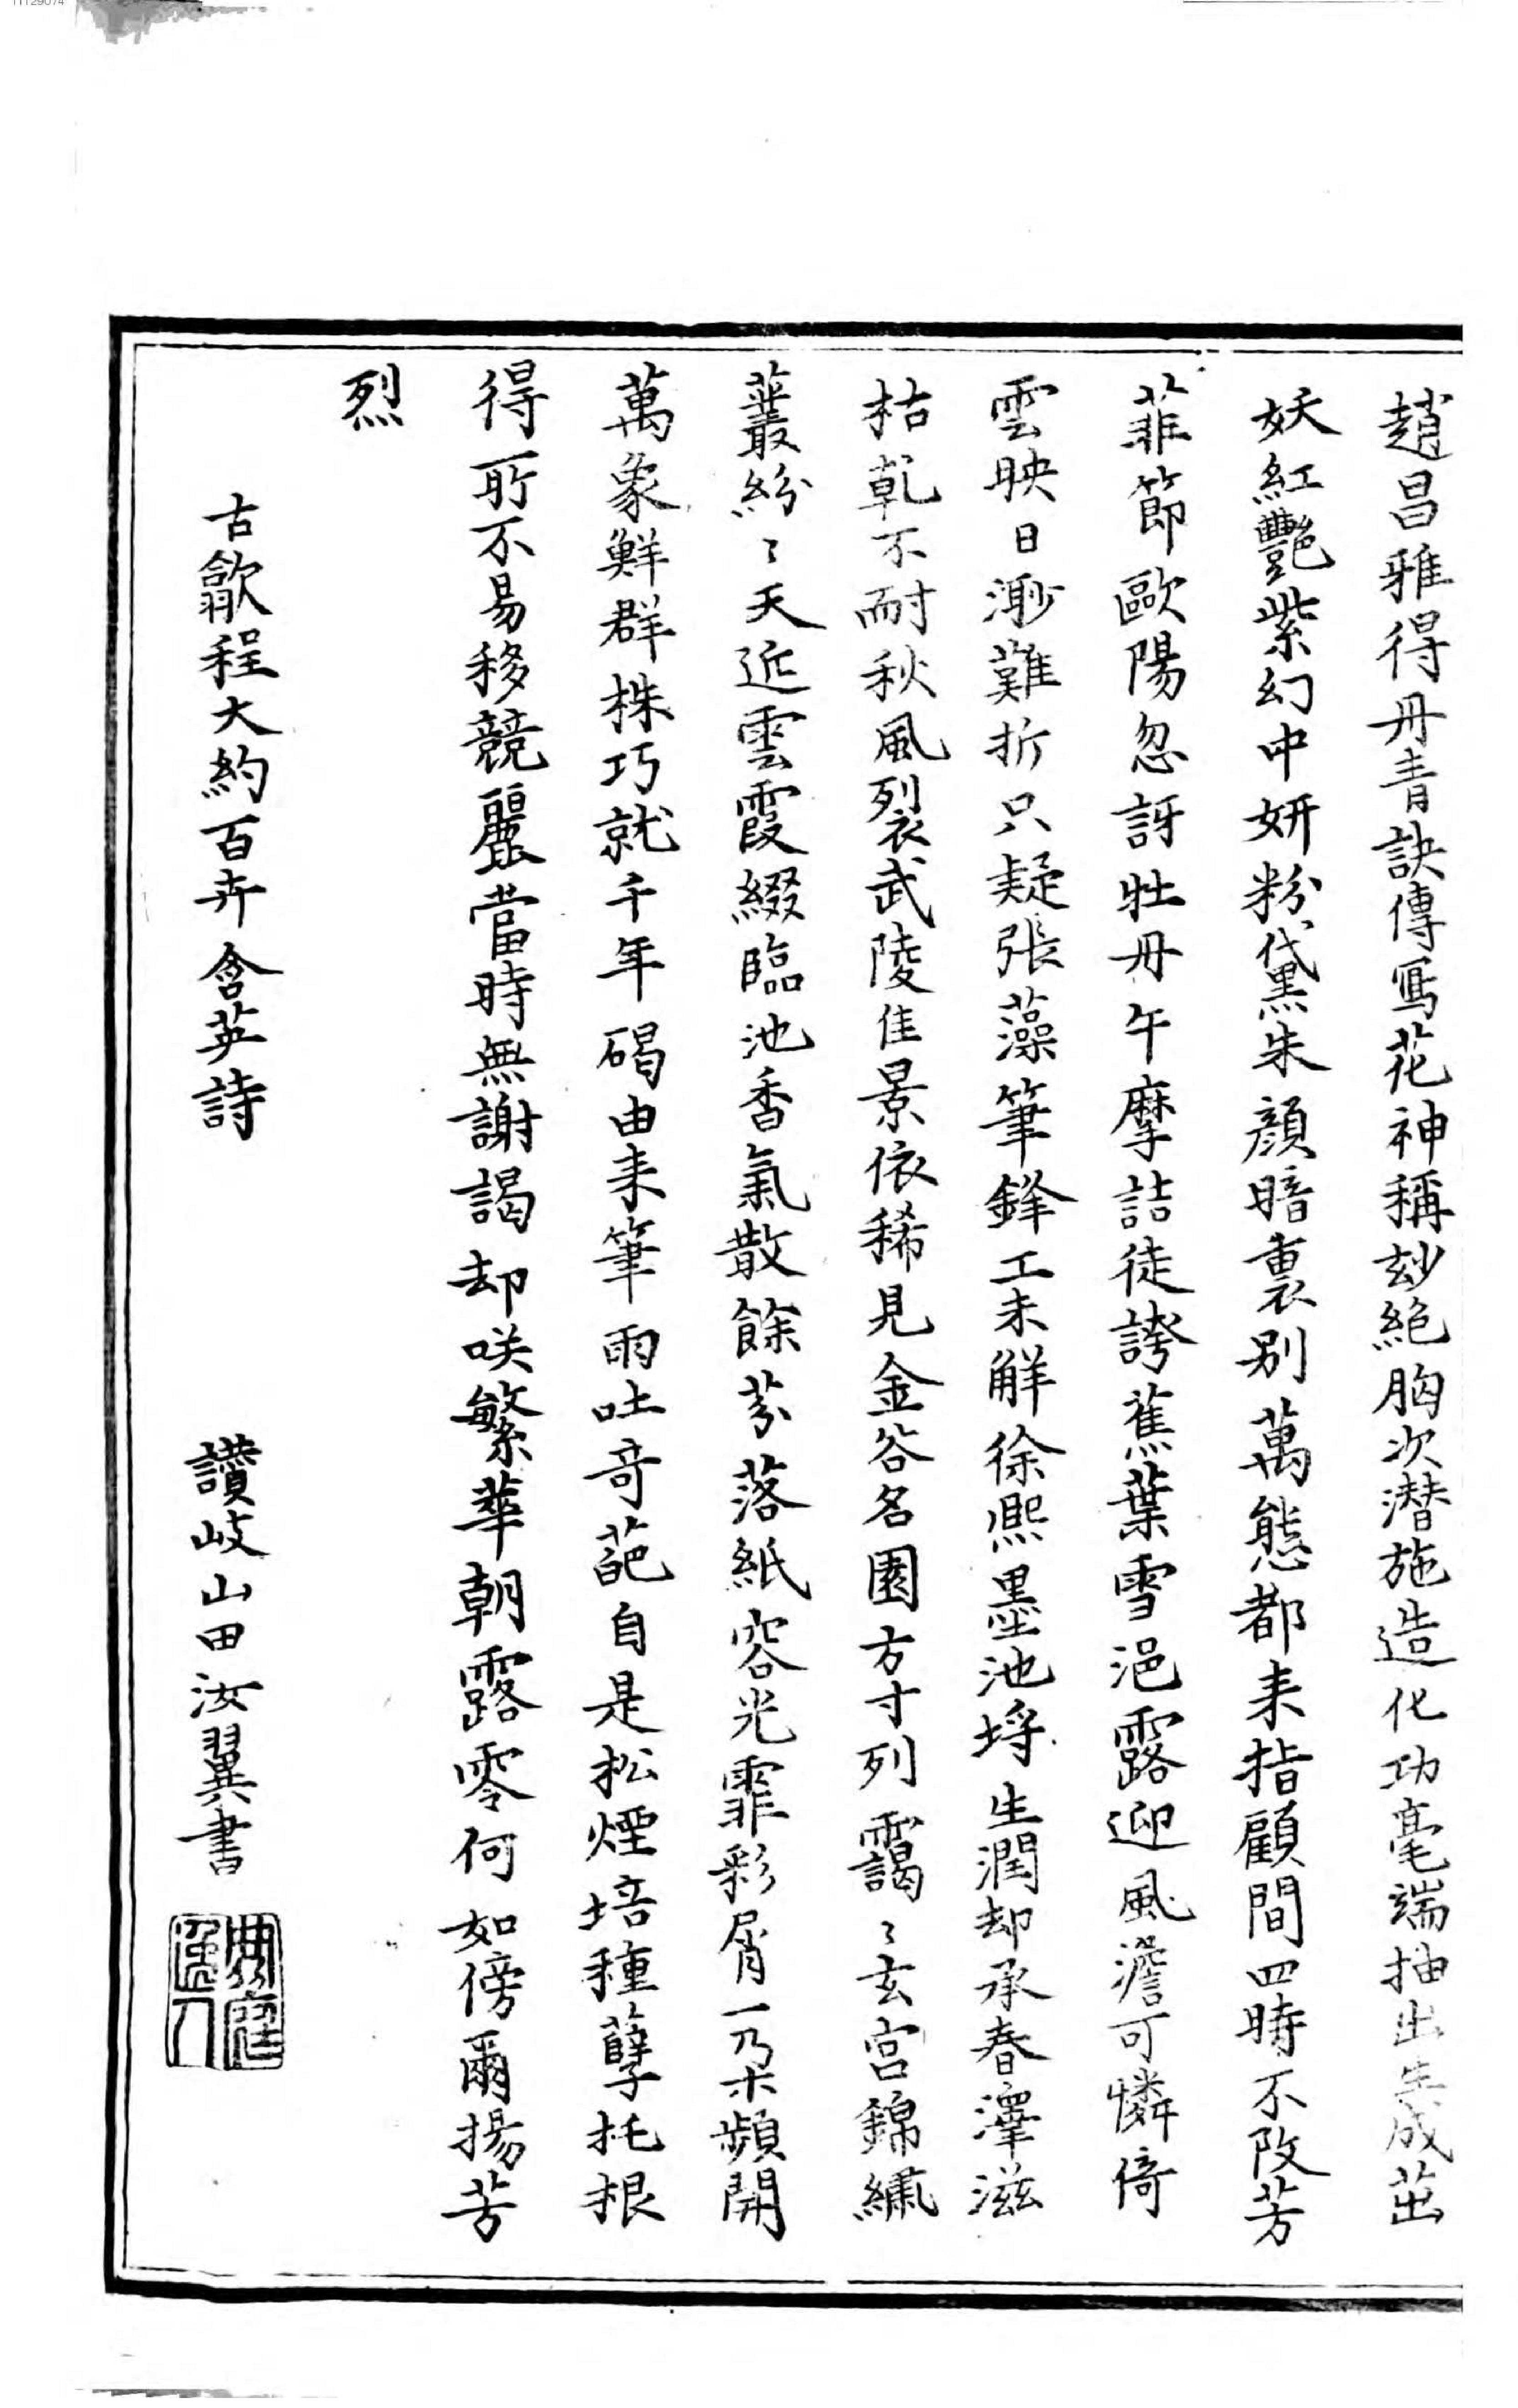 趙昌雅得丹青訣傳寫花神稱玅絕胸次潜施造化功毫端抽出生成茁
妖紅艷紫幻中妍粉黛朱顔暗裏别萬態都来指顧間四時不改芳
菲節歐陽忽訝牡丹午摩詰徒誇蕉葉雪浥露迎風澹可憐倚
雲映日渺難折只疑張藻筆鋒工未觧徐熙墨池埒生潤却承春澤滋
枯乾不耐秋風裂武陵佳景依稀見金谷名園方寸列靄〻玄宫錦繡
叢紛〻天近雲霞綴臨池香氣散餘芬落紙容光霏彩屑一朶頻開
萬象鮮群株巧就千年碣由来筆雨吐竒葩自是松煙培種孽托根
得所不易移競麗當時無謝謁却咲繁華朝露零何如傍爾揚芳
烈
古歙程大約百卉含英詩
讃岐山田汝翼書
典庭逸人
11129074